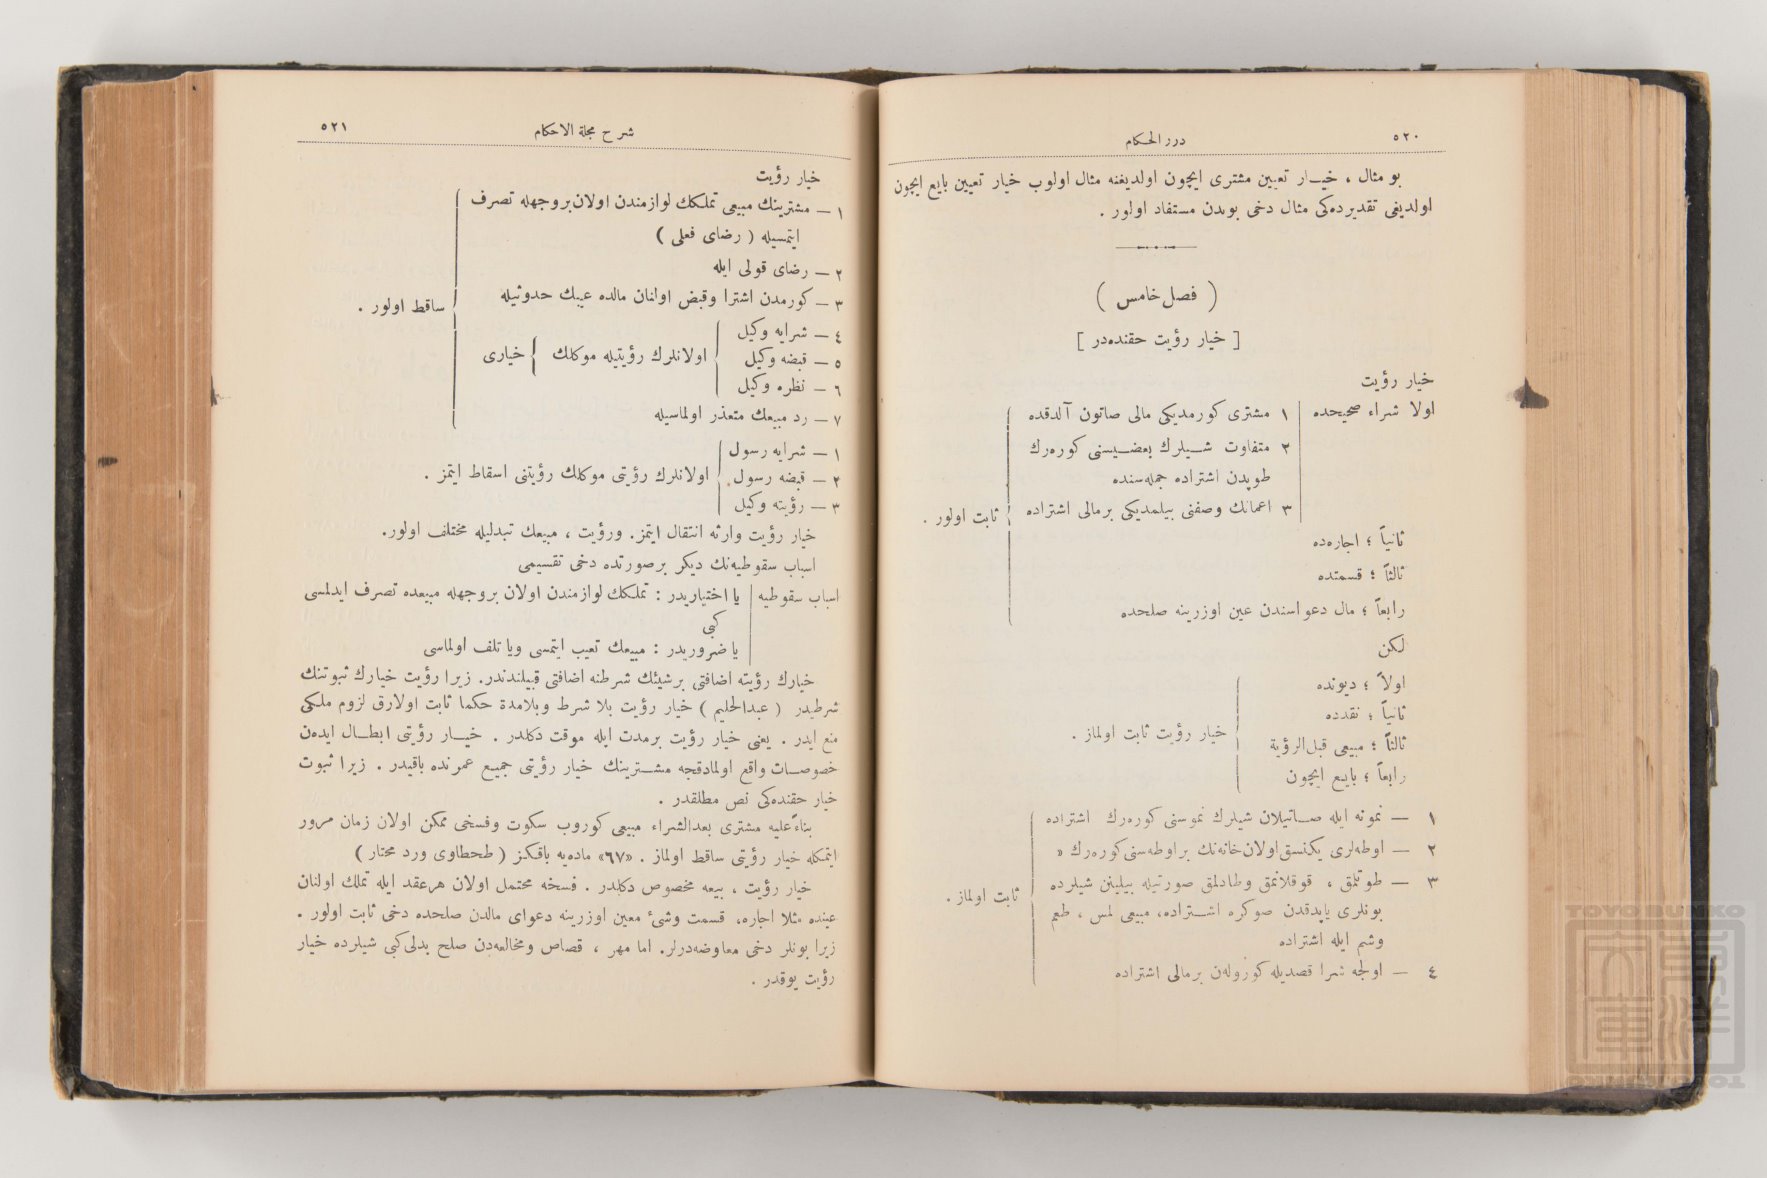 ٥٢٠
درر الحكام
بو مثال ، خيـار تعيين مشترى ايچون اولديغنه مثال اولوب خيار تعيين بايع ايچون
اولديغى تقديرده‌كى مثال دخى بوندن مستفاد اولور .
( فصل خامس )
[ خيار رؤيت حقنده‌در ]
خيار رؤيت
اولا شراء صحيحده
١ مشترى كورمديكى مالى صاتون آلدقده
٢ متفاوت شـيلرك بعضـيسنى كوره‌رك
طوپدن اشتراده جمله‌سنده
٣ اعمانك وصفنى بيلمديكى برمالى اشتراده
ثانياً ؛ اجاره‌ده
ثالثاً ؛ قسمتده
رابعاً ؛ مال دعواسندن عين اوزرينه صلحده
ثابت اولور .
لكن
اولاً ؛ ديونده
ثانياً ؛ نقدده
ثالثاً ؛ مبيعى قبل‌الرؤية
رابعاً ؛ بايـع ايچون
خيار رؤيت ثابت اولماز .
١ — نمونه ايله صـاتيلان شيلرك نمونه‌سنى كوره‌رك اشتراده
٢ — اوطه‌لرى يكنسق‌اولان‌خانه‌نك براوطه‌سنى‌كوره‌رك »
٣ — طوتلمق ، قوقلانمق وطادلمق صورتيله بيلينن شيلرده
بونلرى ياپدقدن صوكره اشـتراده، مبيعى لمس ، طعم
وشم ايله اشتراده
٤ — اولجه شرا قصديله كوزوله‌ن برمالى اشتراده
ثابت اولماز .
شرح مجلة الاحكام
٥٢١
خيار رؤيت
١ — مشترينك مبيعى تملكك لوازمندن اولان‌بروجهله تصرف
ايتمسيله ( رضاى فعلى )
٢ — رضاى قولى ايله
٣ — كورمدن اشترا وقبض اولنان مالده عيبك حدوثيله
٤ — شرايه وكيل
٥ — قبضه وكيل
٦ — نظره وكيل
اولانلرك رؤيتيله موكلك
خيارى
٧ — رد مبيعك متعذر اولماسيله
ساقط اولور .
١ — شرايه رسول
٢ — قبضه رسول
٣ — رؤيته وكيل
اولانلرك رؤيتى موكلك رؤيتنى اسقاط ايتمز .
خيار رؤيت وارثه انتقال ايتمز. ورؤيت ، مبيعك تبدليله مختلف اولور.
اسباب سقوطيه‌نك ديكر برصورتده دخى تقسيمى
اسباب سقوطيه
يا اختياريدر : تملكك لوازمندن اولان بروجهله مبيعده تصرف ايدلمسى
كبى
يا ضروريدر : مبيعك تعيب ايتمسى ويا تلف اولماسى
خيارك رؤيته اضافتى برشيئك شرطنه اضافتى قبيلندندر. زيرا رؤيت خيارك ثبوتنك
شرطيدر ( عبدالحليم ) خيار رؤيت بلا شرط وبلامدة حكما ثابت اولارق لزوم ملكى
منع ايدر . يعنى خيار رؤيت برمدت ايله موقت دكلدر . خيـار رؤيتى ابطـال ايده‌ن
خصوصـات واقع اولمادقجه مشـترينك خيار رؤيتى جميـع عمرنده باقيدر . زيرا ثبوت
خيار حقنده‌كى نص مطلقدر .
بناءً عليه مشترى بعدالشراء مبيعى كوروب سكوت وفسخى ممكن اولان زمان مرور
ايتمكله خيار رؤيتى ساقط اولماز . «٦٧» ماده‌يه باقكز ( طحطاوى ورد محتار )
خيار رؤيت ، بيعه مخصوص دكلدر . فسخه محتمل اولان هرعقد ايله تملك اولنان
عينده مثلا اجاره، قسمت وشئ معين اوزرينه دعواى مالدن صلحده دخى ثابت اولور .
زيرا بونلر دخى معاوضه‌درلر. اما مهر ، قصاص ومخالعه‌دن صلح بدلى‌كبى شيلرده خيار
رؤيت يوقدر .
TOYO BUNKO